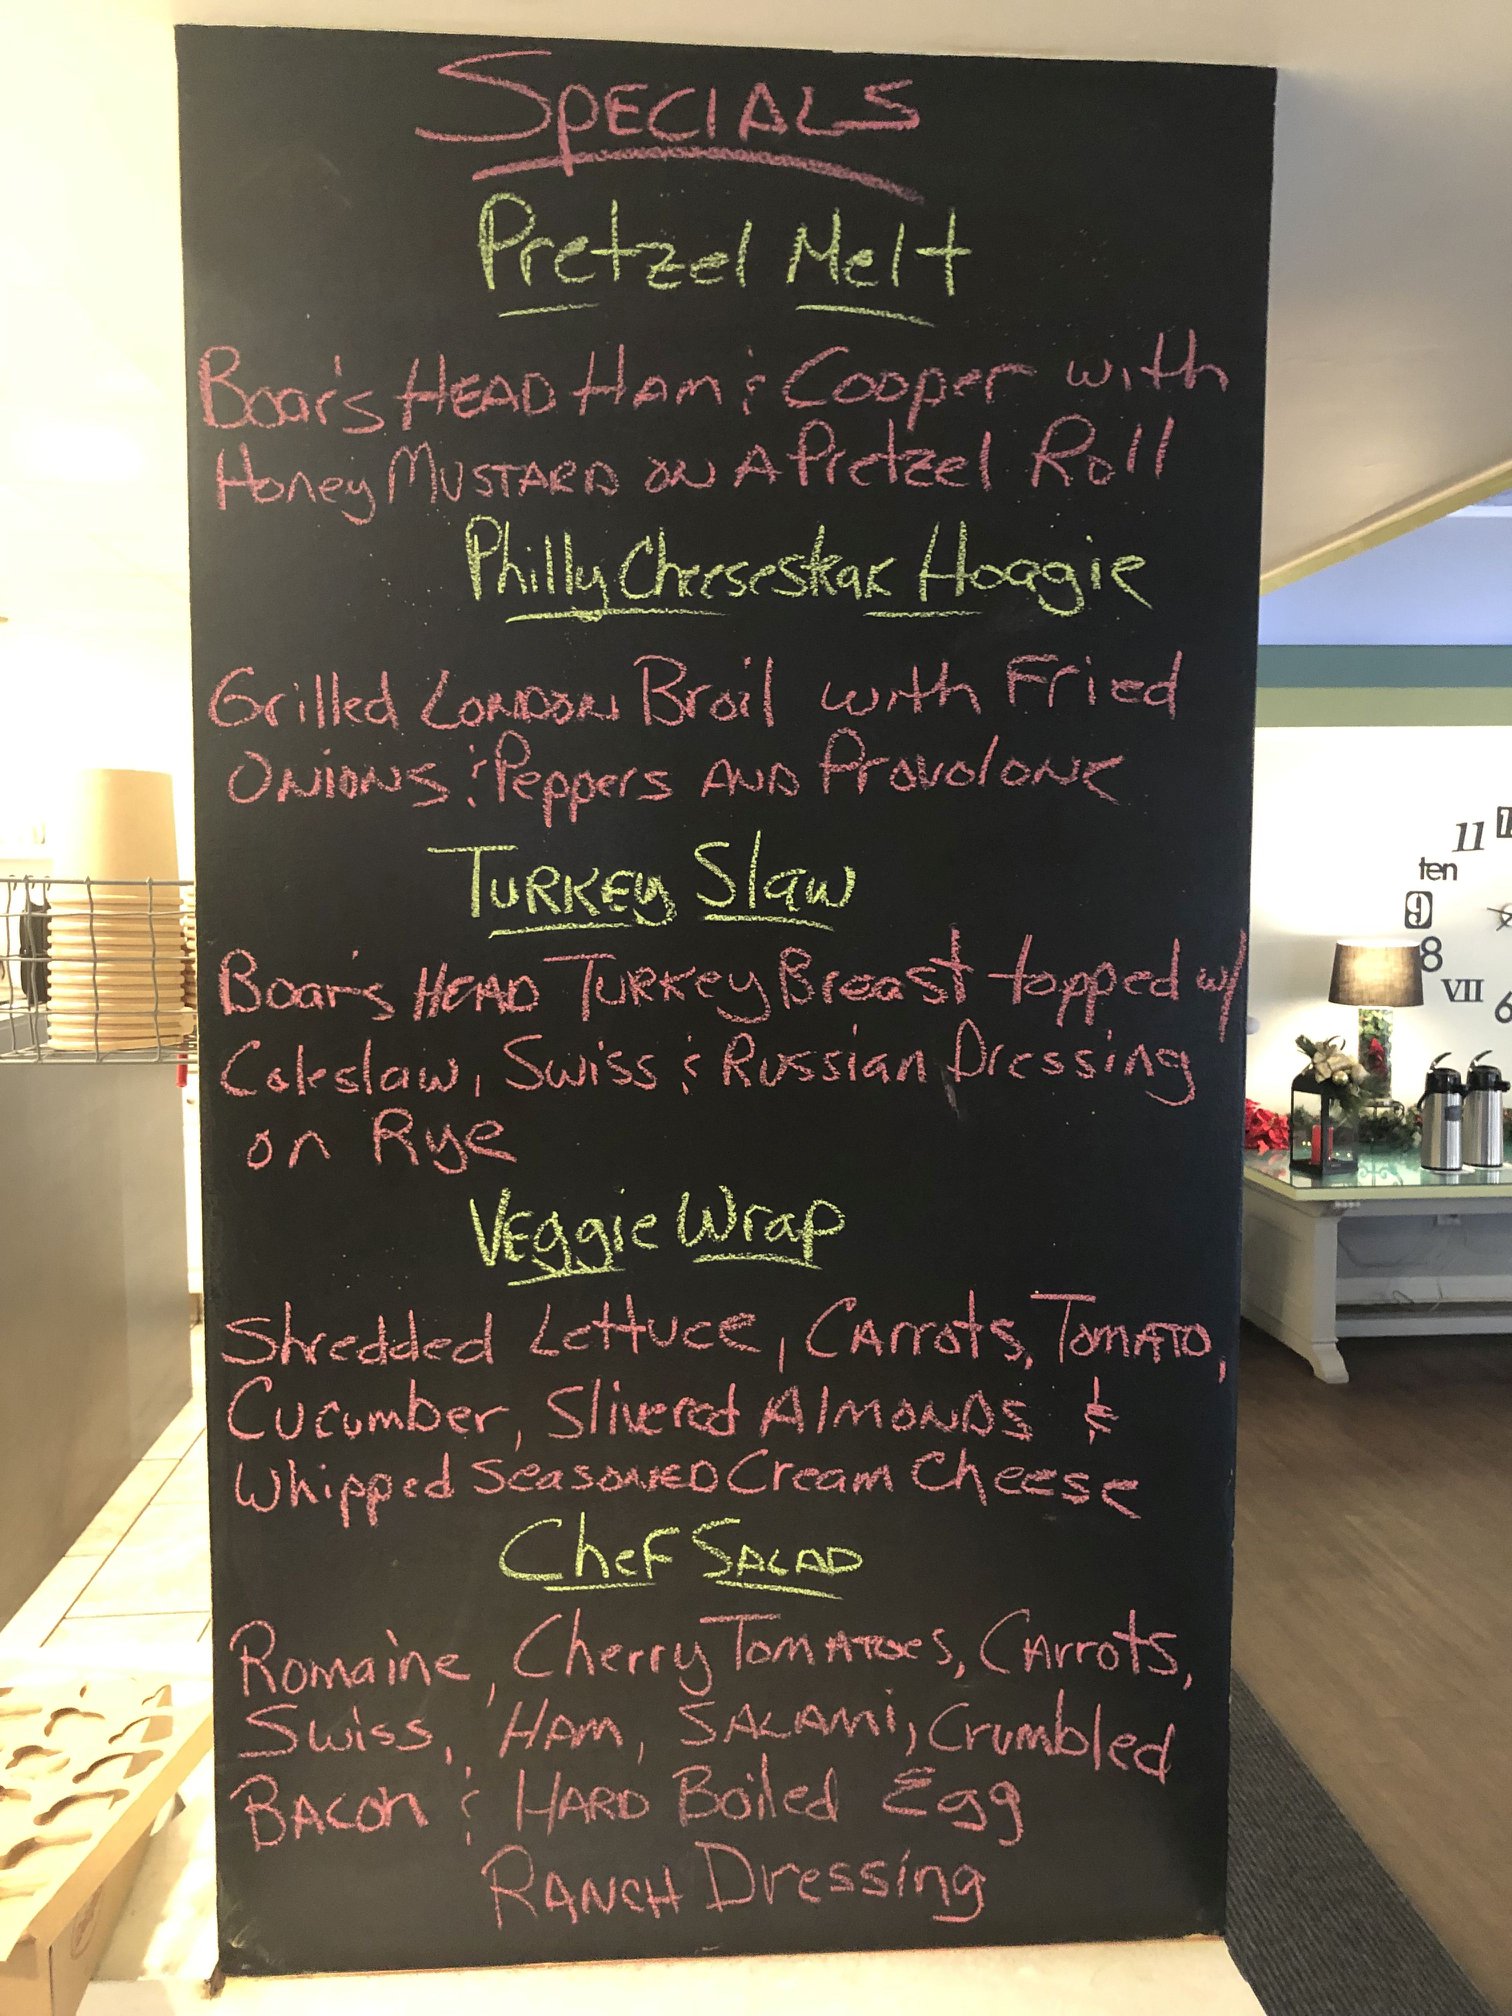 SPECIALS
Pretzel Melt
Boar's HEAD HAM & Cooper with
Honey MUSTARD ON A Pretzel Roll
Philly Cheesesteak Hoagie
Grilled LONDON Broil with Fried
ONIONS & Peppers AND Provolone
TURKEY Slaw
Boar's HEAD TURKEY Breast topped w/
Coleslaw, Swiss & Russian Dressing
on Rye
VEggie Wrap
Shredded Lettuce, CArrots, TOMATO,
Cucumber, Slivered AlMONDS &
Whipped SEASONED Cream Cheese
Chef SALAD
Romaine, Cherry TOMATOES, CArrots,
Swiss, HAM, SALAMi, Crumbled
BACON & HARD Boiled Egg
RANCH Dressing
11
ten
9
8
VII
6